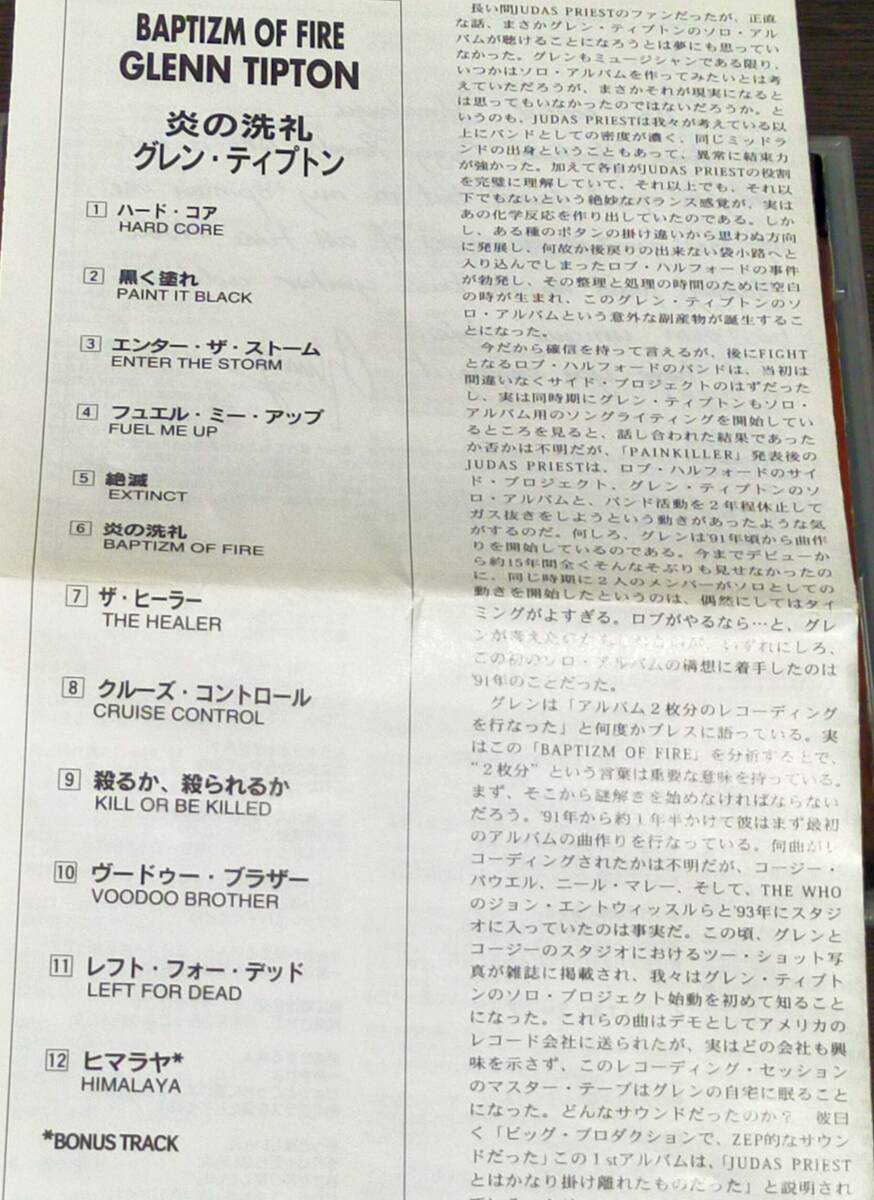 BAPTIZM OF FIRE
GLENN TIPTON
炎の洗礼
グレン・ティプトン
1 ハード・コア
HARD CORE
2 黒く塗れ
PAINT IT BLACK
3 エンター・ザ・ストーム
ENTER THE STORM
4 フュエル・ミー・アップ
FUEL ME UP
5 絶滅
EXTINCT
6 炎の洗礼
BAPTIZM OF FIRE
7 ザ・ヒーラー
THE HEALER
8 クルーズ・コントロール
CRUISE CONTROL
9 殺るか、殺られるか
KILL OR BE KILLED
10 ヴードゥー・ブラザー
VOODOO BROTHER
11 レフト・フォー・デッド
LEFT FOR DEAD
12 ヒマラヤ*
HIMALAYA
*BONUS TRACK
長い間JUDAS PRIESTのファンだったが、正直
な話、まさかグレン・ティプトンのソロ・アル
バムが聴けることになろうとは夢にも思ってい
なかった。グレンもミュージシャンである限り、
いつかはソロ・アルバムを作ってみたいとは考
えていただろうが、まさかそれが現実になると
は思ってもいなかったのではないだろうか。と
いうのも、JUDAS PRIESTは我々が考えている以
上にバンドとしての密度が濃く、同じミッドラ
ンドの出身ということもあって、異常に結束力
が強かった。加えて各自がJUDAS PRIESTの役割
を完璧に理解していて、それ以上でも、それ以
下でもないという絶妙なバランス感覚が、実は
あの化学反応を作り出していたのである。しか
し、ある種のボタンの掛け違いから思わぬ方向
に発展し、何故か後戻りの出来ない袋小路へと
入り込んでしまったロブ・ハルフォードの事件
が勃発し、その整理と処理の時間のために空白
の時が生まれ、このグレン・ティプトンのソ
ロ・アルバムという意外な副産物が誕生するこ
とになった。
今だから確信を持って言えるが、後にFIGHT
となるロブ・ハルフォードのバンドは、当初は
間違いなくサイド・プロジェクトのはずだった
し、実は同時期にグレン・ティプトンもソロ・
アルバム用のソングライティングを開始してい
るところを見ると、話し合われた結果であった
か否かは不明だが、「PAINKILLER」発表後の
JUDAS PRIESTは、ロブ・ハルフォードのサイ
ド・プロジェクト、グレン・ティプトンのソ
ロ・アルバムと、バンド活動を2年程休止して
ガス抜きをしようという動きがあったような気
がするのだ。何しろ、グレンは'91年頃から曲作
りを開始しているのである。今までデビューか
ら約15年間全くそんなそぶりも見せなかったの
に、同じ時期に2人のメンバーがソロとしての
動きを開始したというのは、偶然にしてはタイ
ミングがよすぎる。ロブがやるなら…と、グレ
ンが考えたかどうか いずれにしろ、
この初のソロ・アルバムの構想に着手したのは
'91年のことだった。
グレンは「アルバム2枚分のレコーディング
を行なった」と何度かプレスに語っている。実
はこの「BAPTIZM OF FIRE」を分析する上で、
“2枚分”という言葉は重要な意味を持っている。
まず、そこから謎解きを始めなければならない
だろう。'91年から約1年半かけて彼はまず最初
のアルバムの曲作りを行なっている。何曲がレ
コーディングされたかは不明だが、コージー・
パウエル、ニール・マレー、そして、THE WHO
のジョン・エントウィッスルらと'93年にスタジ
オに入っていたのは事実だ。この頃、グレンと
コージーのスタジオにおけるツー・ショット写
真が雑誌に掲載され、我々はグレン・ティプト
ンのソロ・プロジェクト始動を初めて知ること
になった。これらの曲はデモとしてアメリカの
レコード会社に送られたが、実はどの会社も興
味を示さず、このレコーディング・セッション
のマスター・テープはグレンの自宅に眠ること
になった。どんなサウンドだったのか？ 彼曰
く「ビッグ・プロダクションで、ZEP的なサウン
ドだった」この1stアルバムは、「JUDAS PRIEST
とはかなり掛け離れたものだった」と説明され